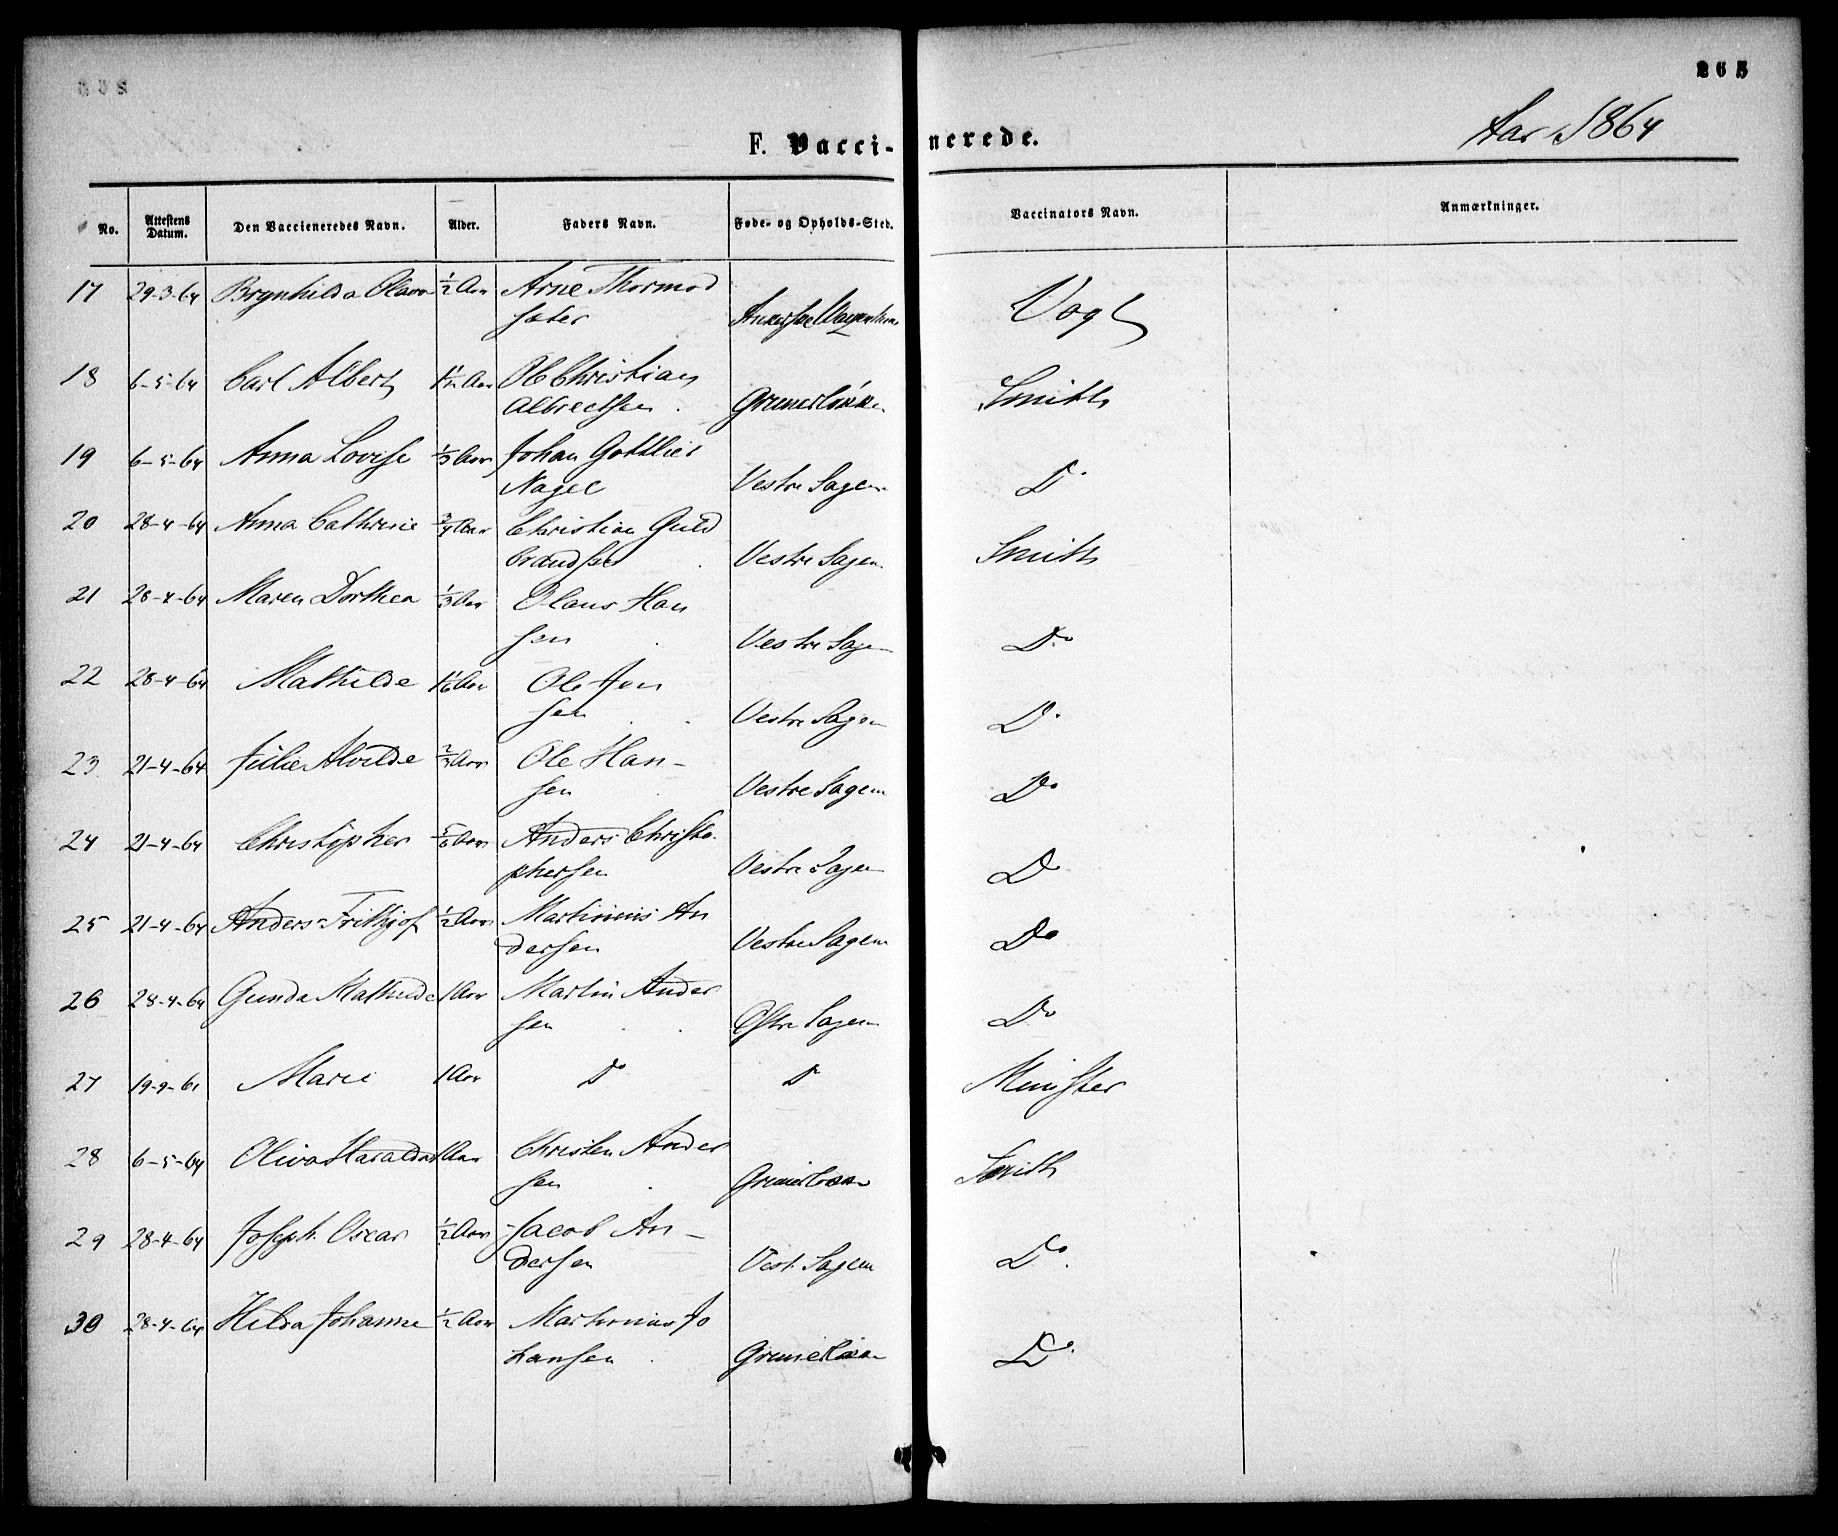 265
Aar 1864
F. Vaccinerede.
No. Attestens Datum. Den Vaccieneredes Navn. Alder. Faders Navn. Føde- og Opholds-Sted. Vaccinators Navn. Anmærkninger.
17 29-3-64 Brynhilda Olava 1/2 Aar Arne Thormod
sæter Vogt
18 6-5-64 Carl Albert 11/12 Aar Ole Christian
Albrectsen Grunerløkken Smith
19 6-5-64 Anna Lovise 1/3 Aar Johan Gottlieb
Nagel Vestre Sagene D°
20 28-4-64 Anna Cathrine 3/4 Aar Christian Guld
brandsen Vestre Sagen Smith
21 28-4-64 Maren Dorthea 1/3 Aar Olaus Han
sen Vestre Sagen D°
22 28-4-64 Mathilde 1 1/6 Aar Ole Jen
sen Vestre Sagen D°
23 21-4-64 Julie Alvilde 2/3 Aar Ole Han-
sen Vestre Sagen D°
24 21-4-64 Christopher 5/6 Aar Anders Christo-
phersen Vestre Sagen D°
25 21-4-64 Anders Frithjof 1/2 Aar Martinius An
dersen Vestre Sagen D°
26 28-4-64 Gunda Mathilde 1 Aar Martin Ander
sen Østre Sagen D°
27 19-9-61 Marie 1 Aar D° D° Münster
28 6-5-64 Oliva Haralda 1 Aar Christen Ander
sen Grünerløkken Smith
29 28-4-64 Joseph Oscar 1/2 Aar Jacob An-
dersen Vest. Sagen D°
30 28-4-64 Hilda Johanne 1/2 Aar Martinius Jo
hansen Grunerløkken D°